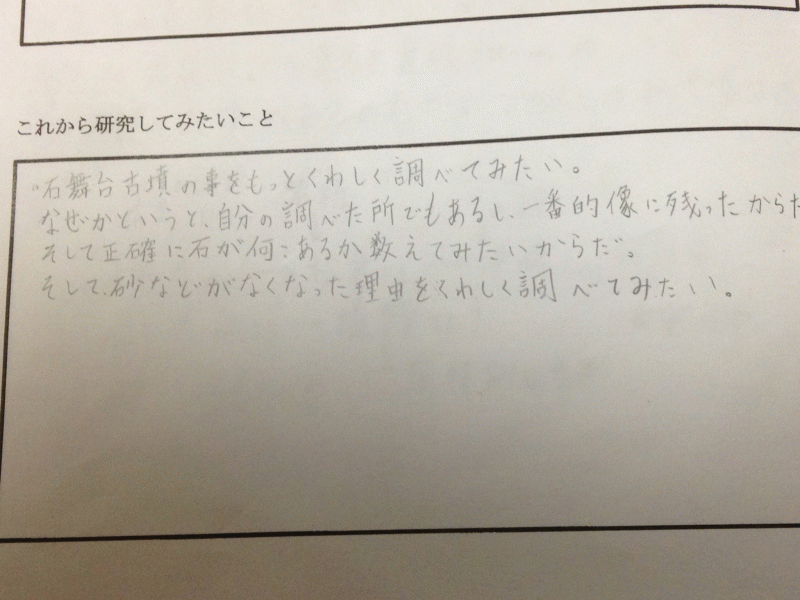 これから研究してみたいこと
・石舞台古墳の事をもっとくわしく調べてみたい。
なぜかというと、自分の調べた所でもあるし、一番的像に残ったからだ
そして正確に石が何こあるか数えてみたいからだ。
そして、砂などがなくなった理由をくわしく調べてみたい。